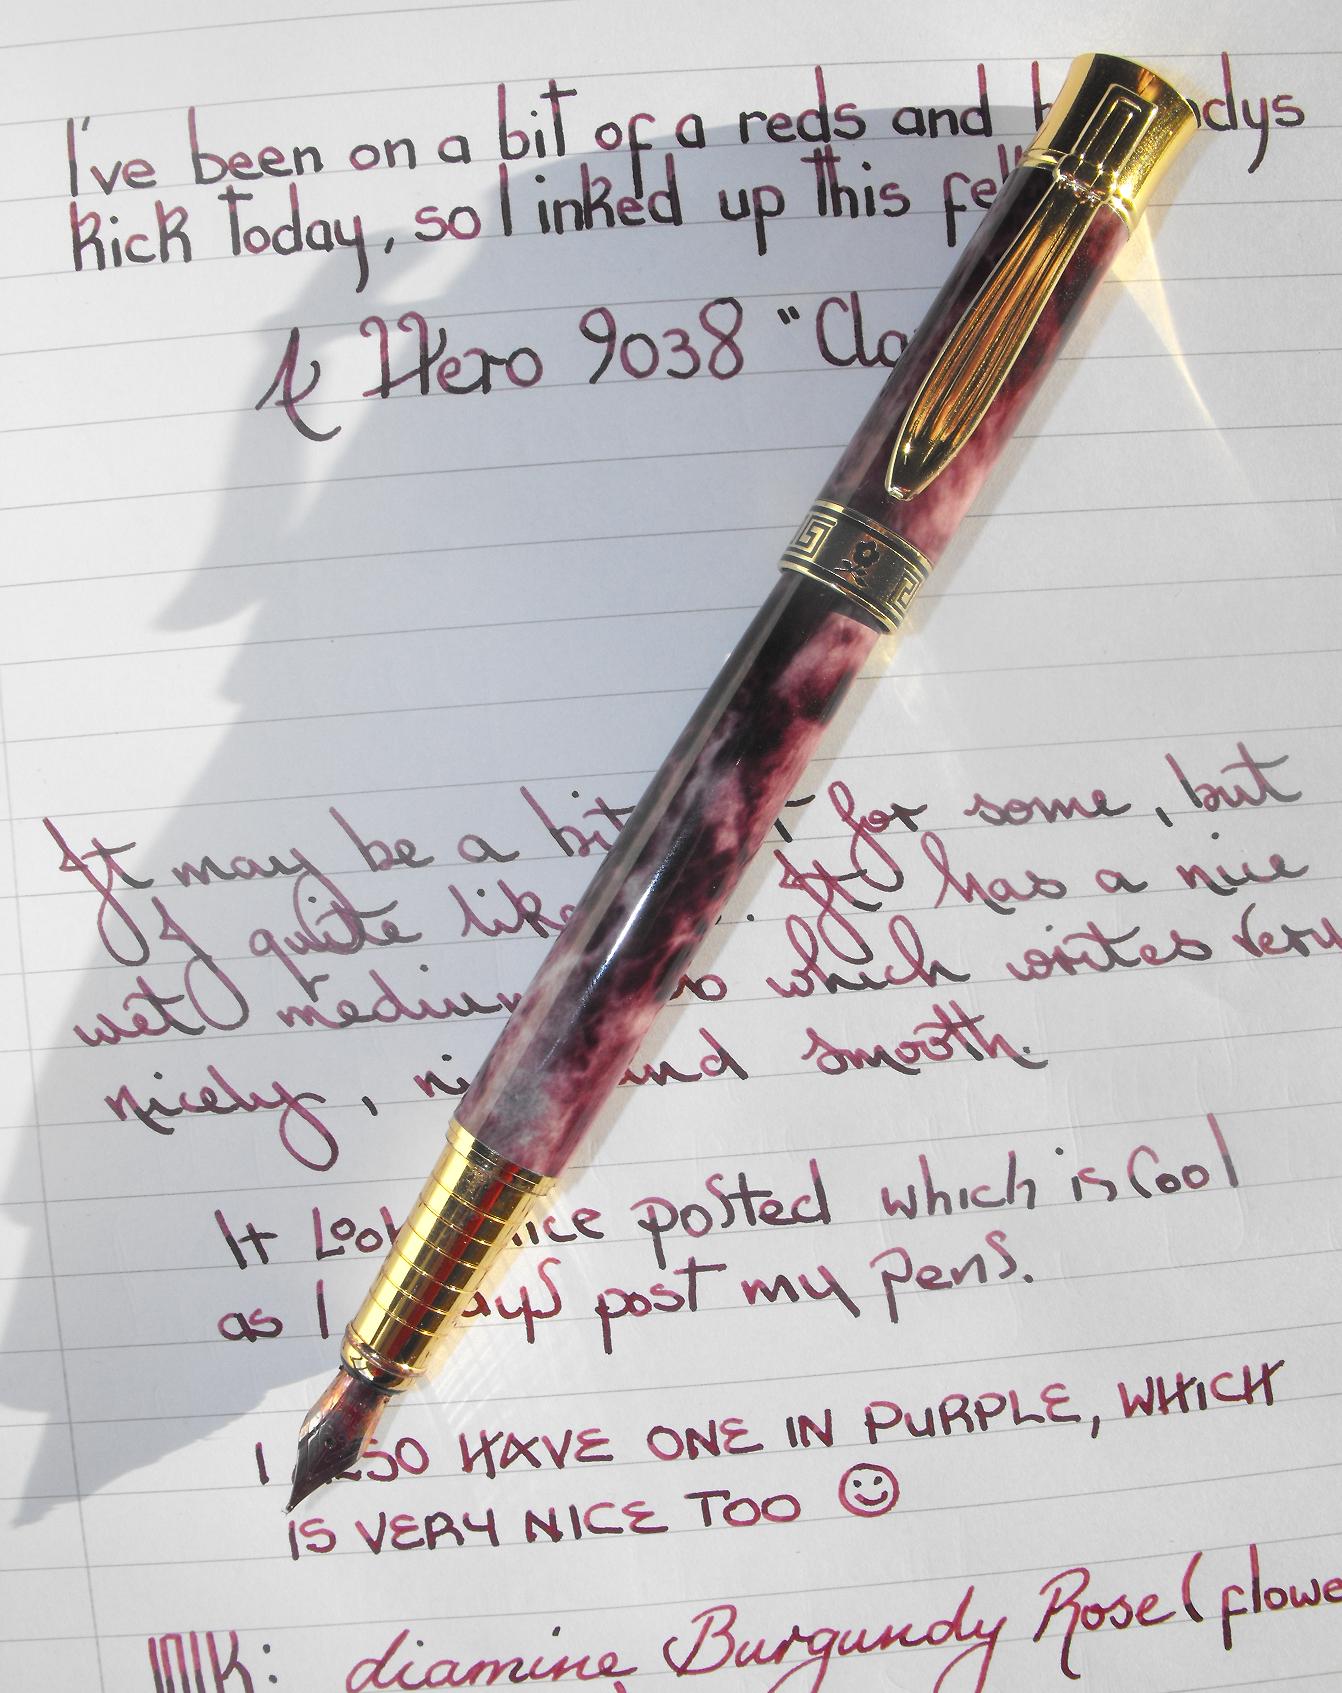 I've been on a bit of a reds and
kick today, so I inked up this
A Hero 9038 "
It may be a bit for some, but
I quite like . It has a nice
wet medium which writes very
nicely, and smooth.
It nice posted which is cool
as I post my pens.
I HAVE ONE IN PURPLE, WHICH
IS VERY NICE TOO ☺
INK: diamine Burgundy Rose (